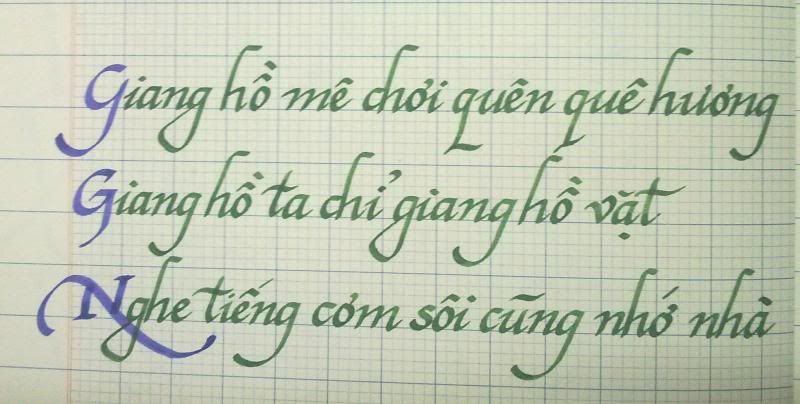 Giang hồ mê chơi quên quê hương
Giang hồ ta chỉ giang hồ vặt
Nghe tiếng cơm sôi cũng nhớ nhà